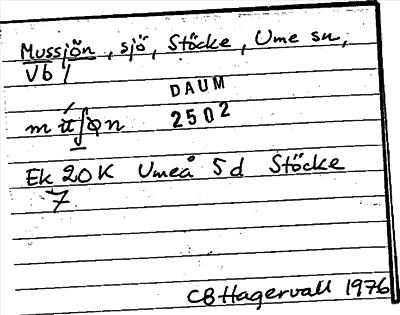 Mussjön, sjö, Stöcke, Ume sn,
Vb /
DAUM
2502
Ek 20K Umeå 5d Stöcke
7
CB Hagervall 1976